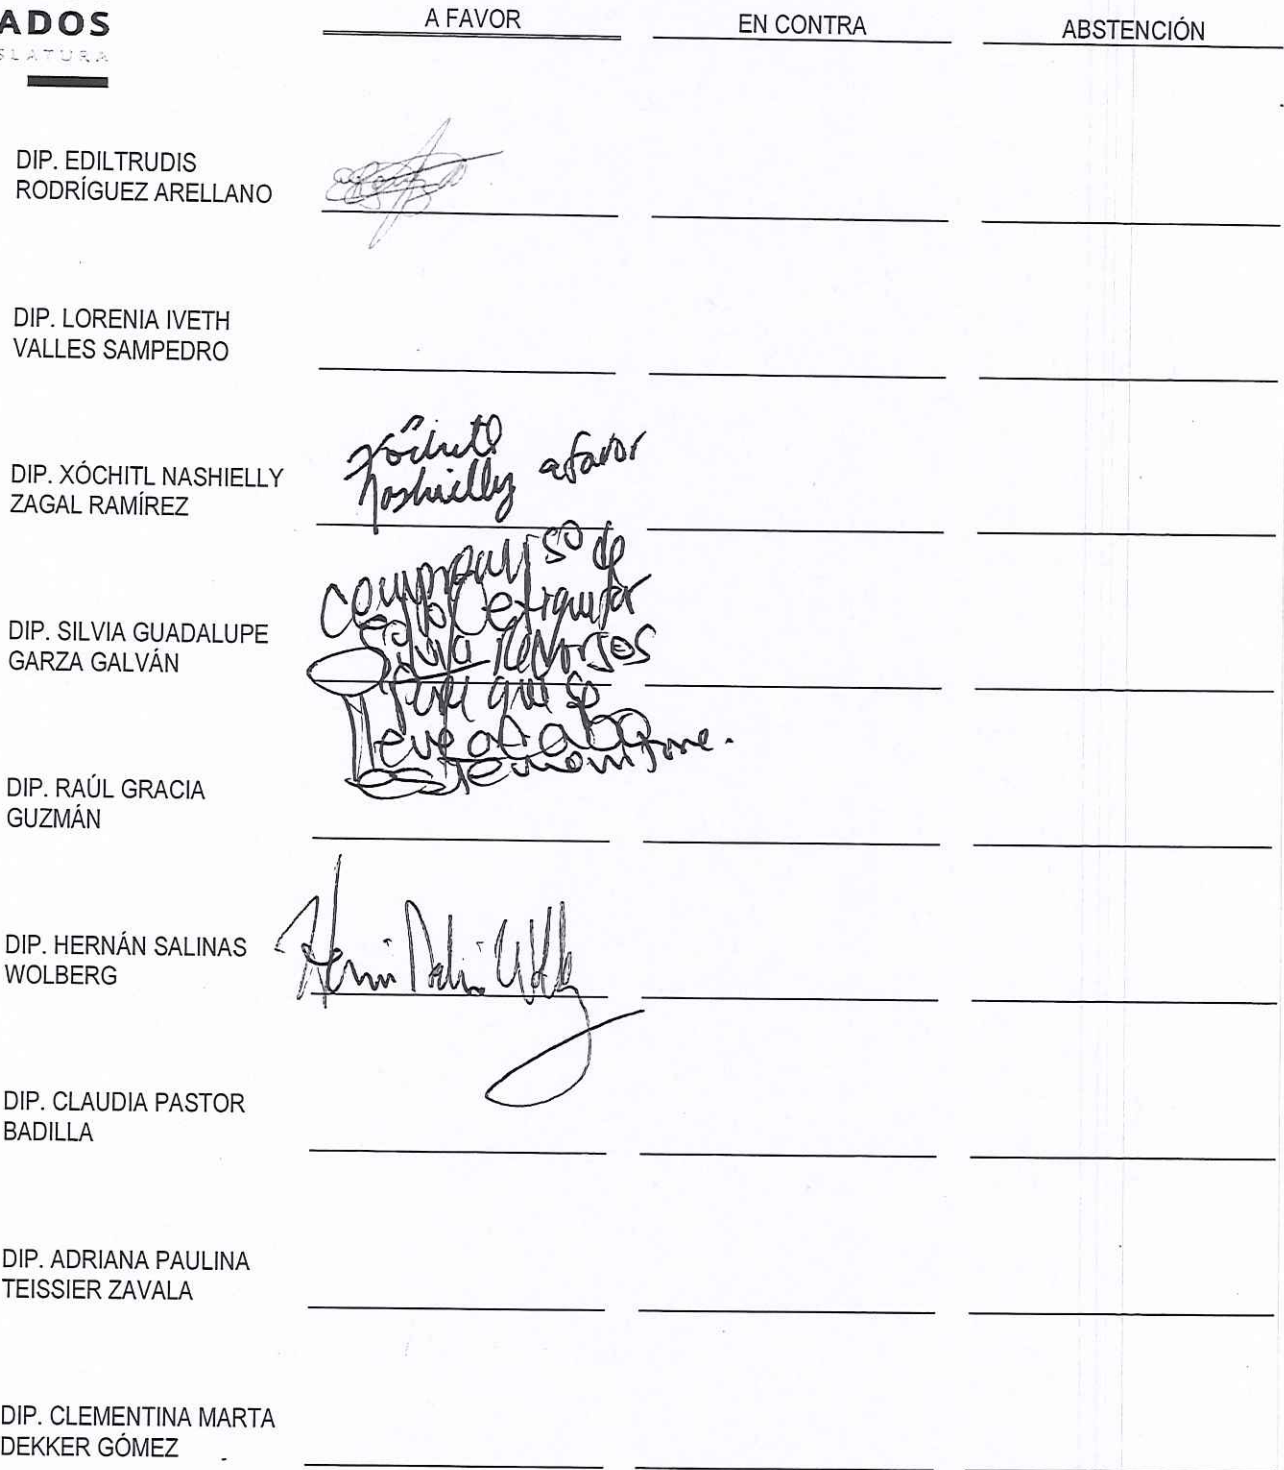 ADOS
SLATURA
A FAVOR
EN CONTRA
ABSTENCIÓN
DIP. EDILTRUDIS
RODRÍGUEZ ARELLANO
DIP. LORENIA IVETH
VALLES SAMPEDRO
DIP. XÓCHITL NASHIELLY
ZAGAL RAMÍREZ
Xóchitl
Nashielly a favor
DIP. SILVIA GUADALUPE
GARZA GALVÁN
compromiso de
etiquetar
recursos
para que se
lleve a cabo
DIP. RAÚL GRACIA
GUZMÁN
DIP. HERNÁN SALINAS
WOLBERG
DIP. CLAUDIA PASTOR
BADILLA
DIP. ADRIANA PAULINA
TEISSIER ZAVALA
DIP. CLEMENTINA MARTA
DEKKER GÓMEZ